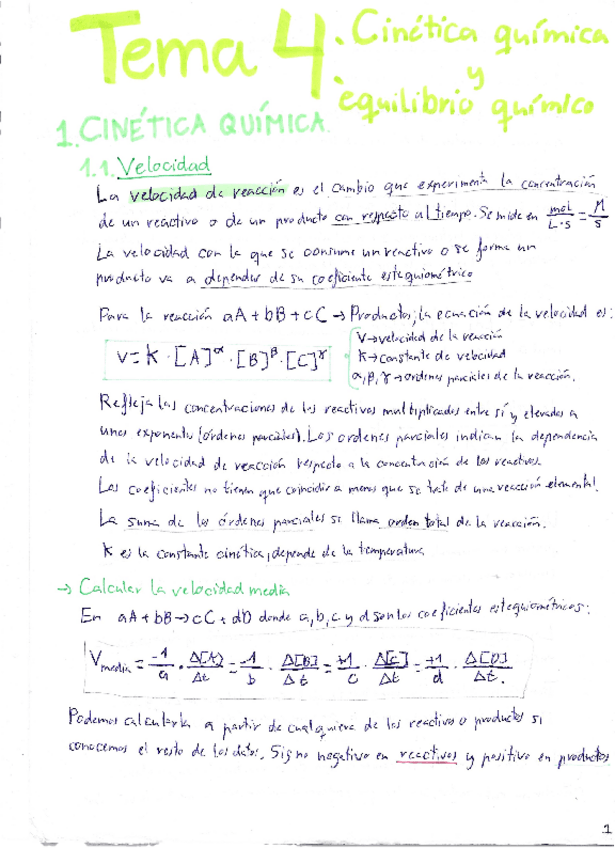 Tema 4: Cinética química
y
equilibrio químico
1. CINÉTICA QUÍMICA.
1.1. Velocidad
La velocidad de reacción es el cambio que experimenta la concentración
de un reactivo o de un producto con respecto al tiempo. Se mide en mol/L·s = M/s
La velocidad con la que se consume un reactivo o se forma un
producto va a depender de su coeficiente estequiométrico
Para la reacción aA + bB + cC → Productos, la ecuación de la velocidad es:
V = K · [A]^α · [B]^β · [C]^γ
V → velocidad de la reacción
K → constante de velocidad
α, β, γ → ordenes parciales de la reacción.
Refleja las concentraciones de los reactivos multiplicadas entre sí y elevadas a
unos exponentes (órdenes parciales). Los ordenes parciales indican la dependencia
de la velocidad de reacción respecto a la concentración de los reactivos.
Los coeficientes no tienen que coincidir a menos que se trate de una reacción elemental.
La suma de los órdenes parciales se llama orden total de la reacción.
K es la constante cinética, depende de la temperatura
→ Calcular la velocidad media
En aA + bB → cC + dD donde a, b, c y d son los coeficientes estequiométricos:
V media = -1/a · Δ[A]/Δt = -1/b · Δ[B]/Δt = +1/c · Δ[C]/Δt = +1/d · Δ[D]/Δt.
Podemos calcularla a partir de cualquiera de los reactivos o productos si
conocemos el resto de los datos. Signo negativo en reactivos y positivo en productos
1